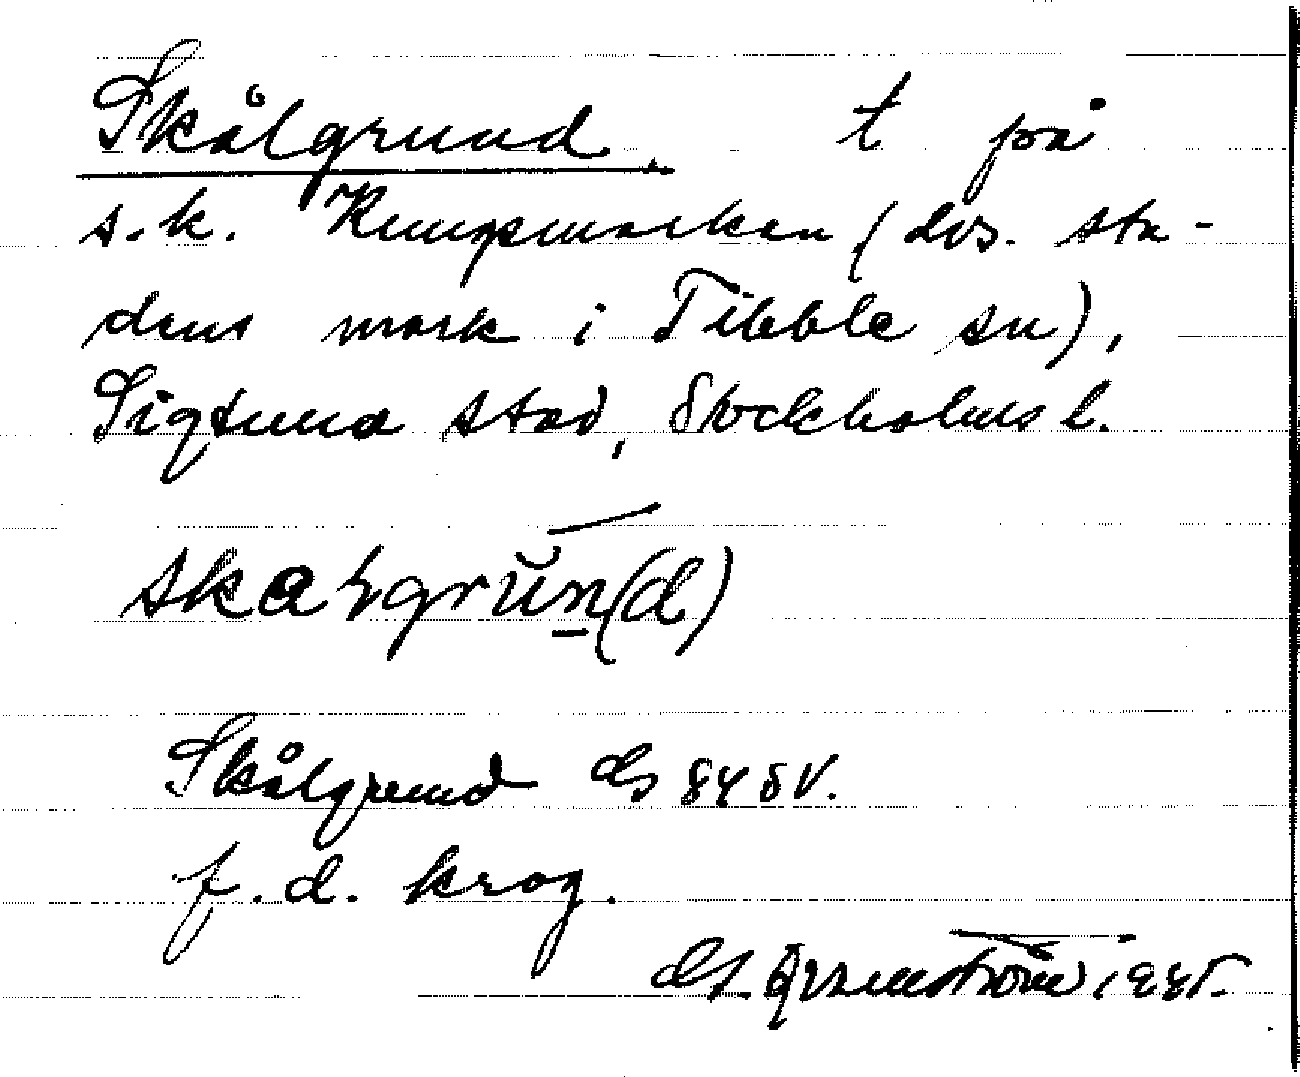 Skålgrund. t på
s.k. Kungsmarken (dvs. sta-
dens mark i Tibble sn),
Sigtuna stad, Stockholms l.
skaɭgrŭn(d)
Skålgrund ds 84 8V.
f.d. krog.